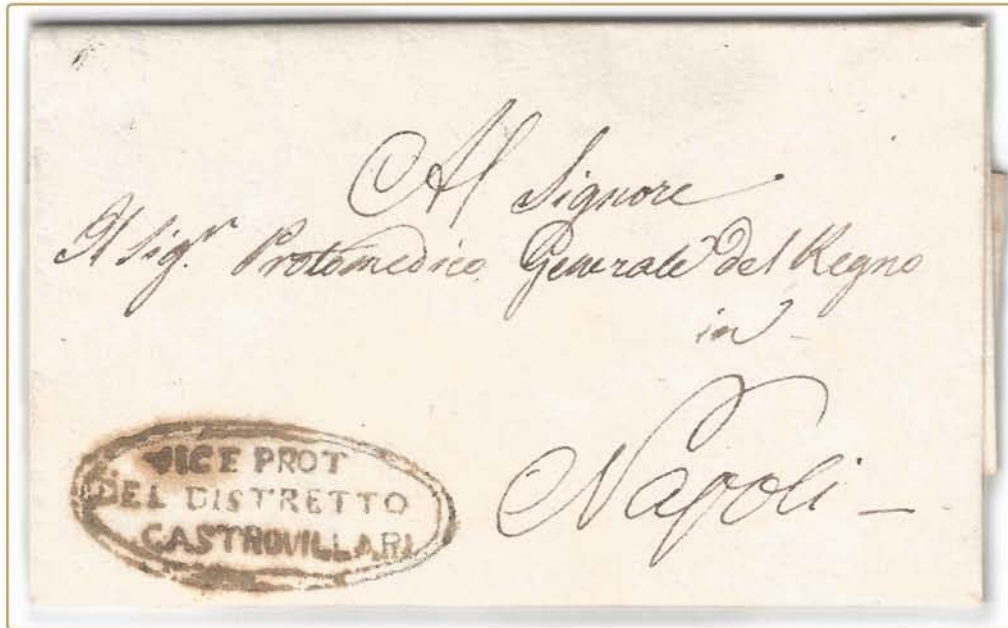 Al Signore
Il Sig.r Protomedico Generale del Regno
in
Napoli
VICE PROT
DEL DISTRETTO
CASTROVILLARI